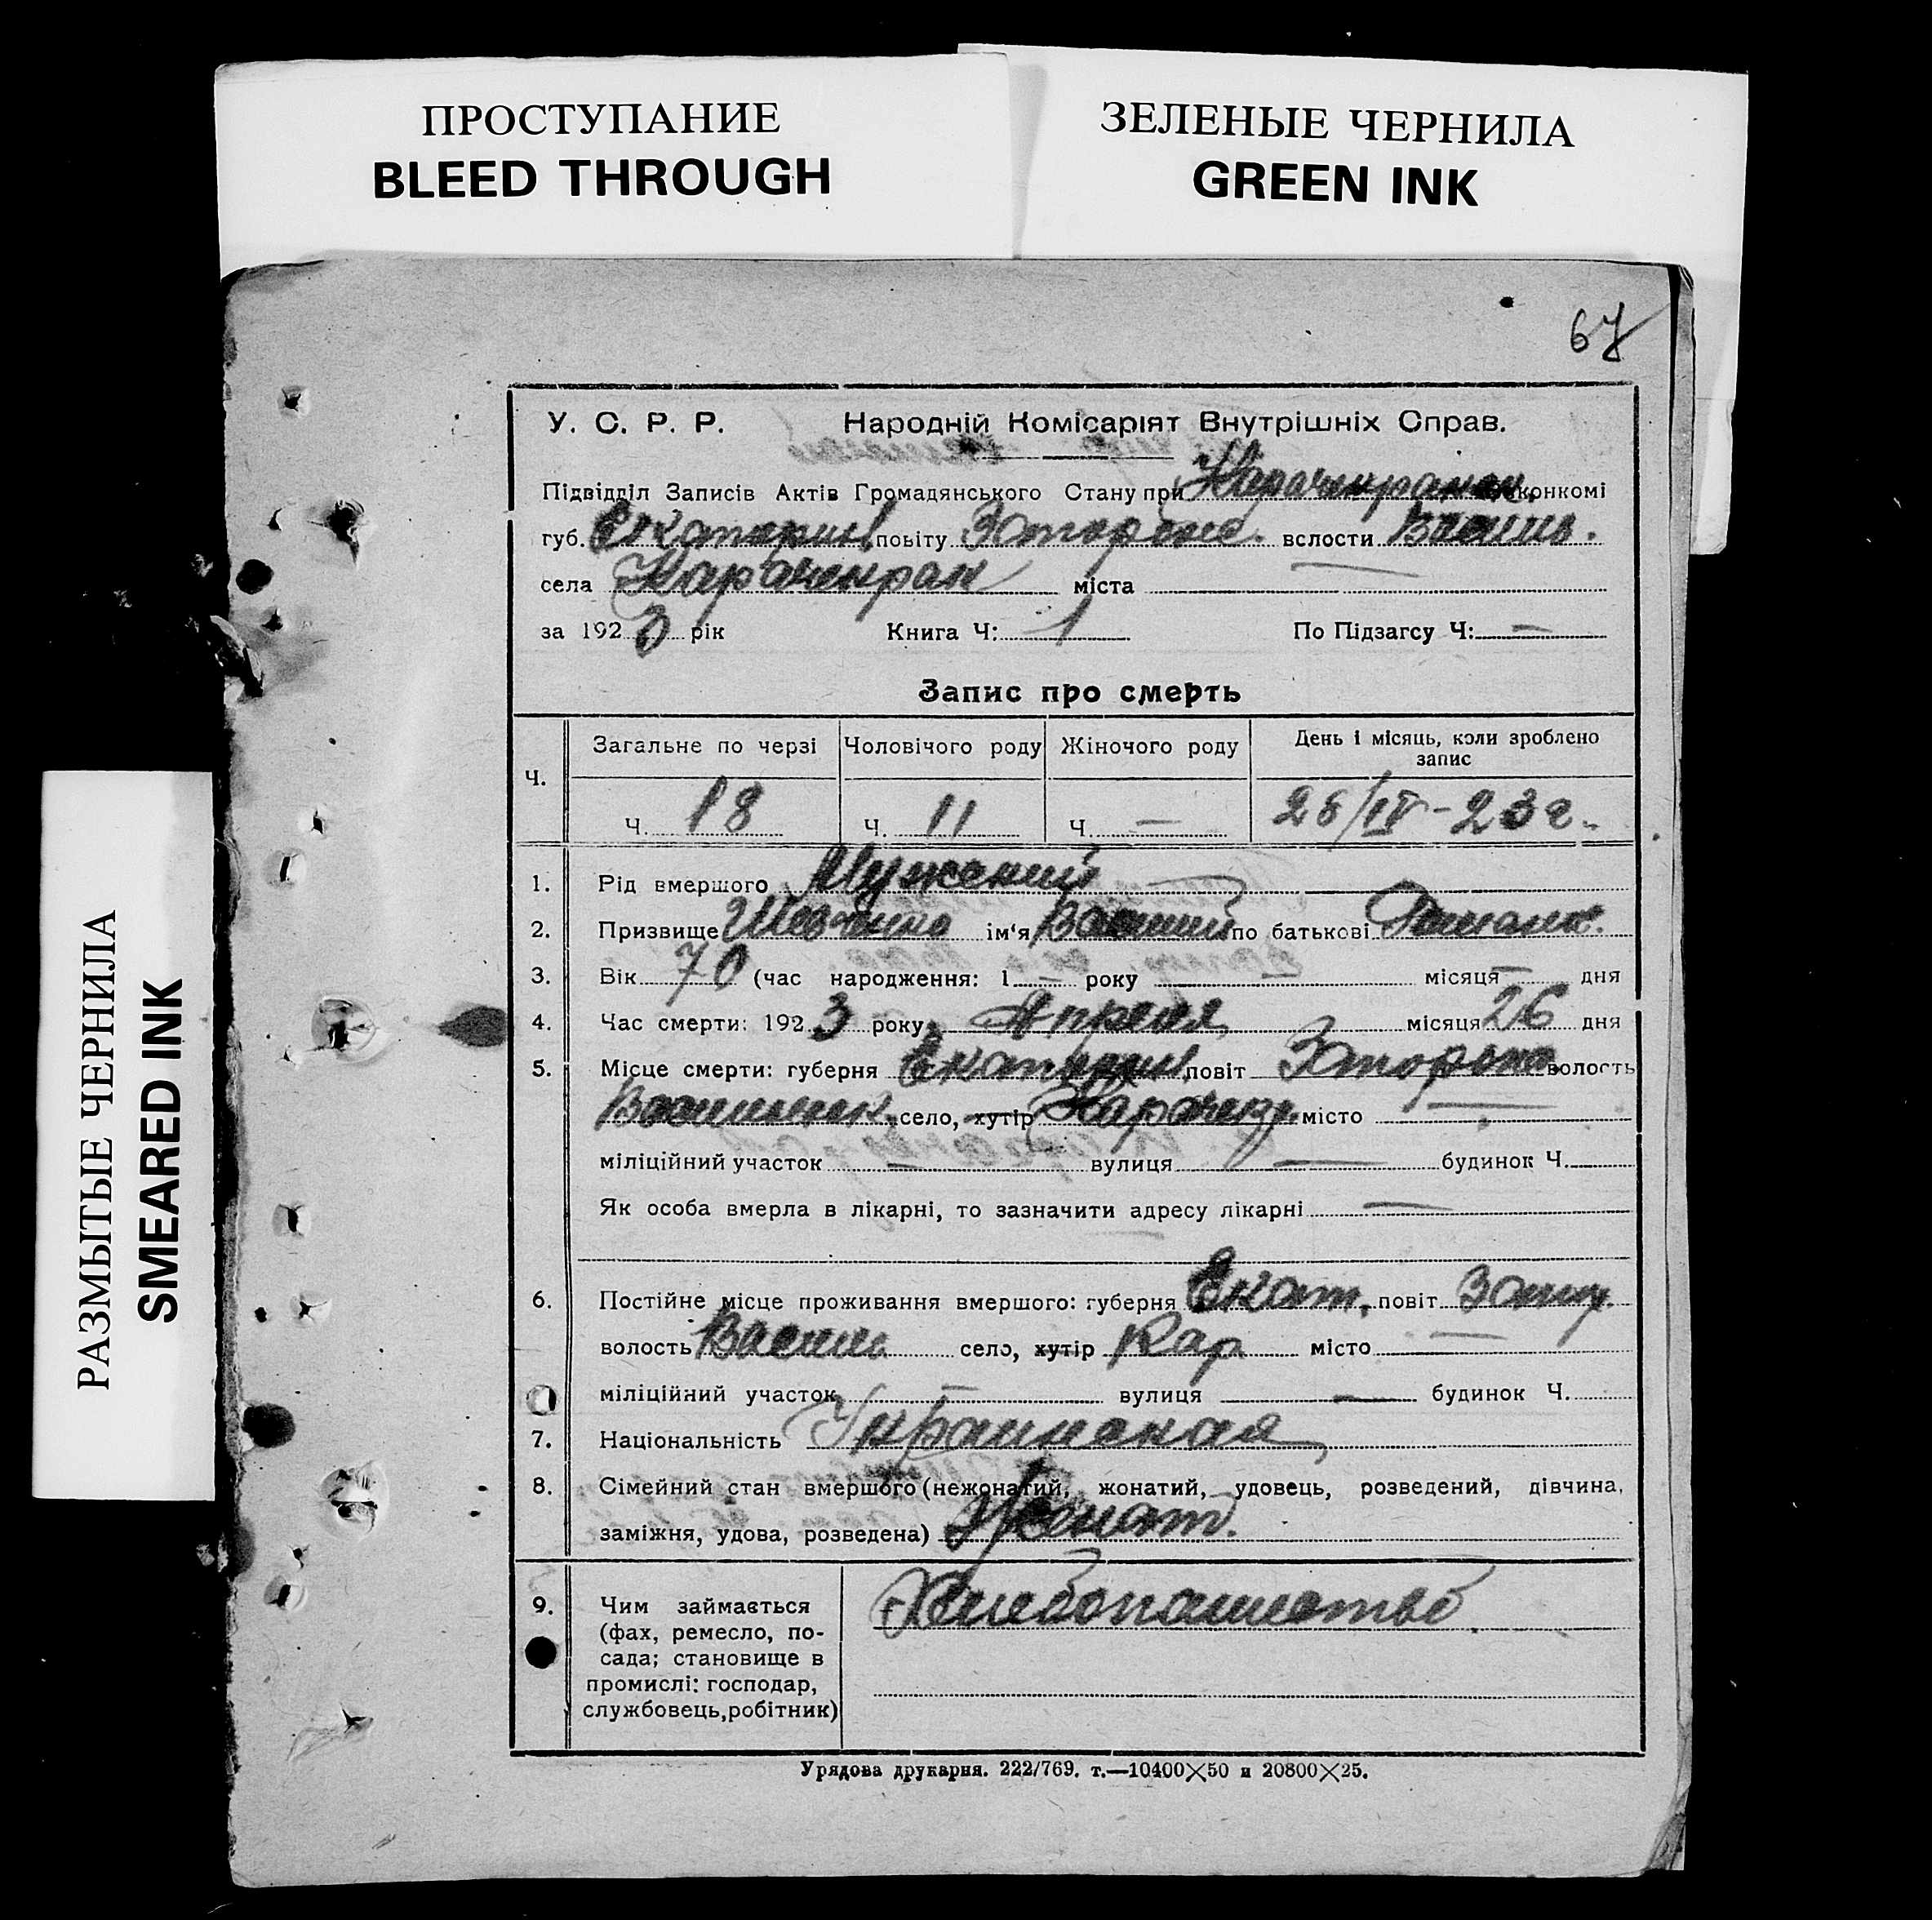 ПРОСТУПАНИЕ
BLEED THROUGH
ЗЕЛЕНЫЕ ЧЕРНИЛА
GREEN INK
РАЗМЫТЫЕ ЧЕРНИЛА
SMEARED INK
67
У. С. Р. Р. Народній Комісаріят Внутрішніх Справ.
Підвідділ Записів Актів Громадянського Стану при конкомі
губ. Екатерин. повіту Запорож. вслости Васил.
села Карачекрак міста —
за 1923 рік Книга Ч: 1 По Підзагсу Ч: —
Запис про смерть
Ч. Загальне по черзі Чоловічого роду Жіночого роду День і місяць, коли зроблено запис
Ч. 18 Ч. 11 Ч. — 28/IV-23 г.
1. Рід вмершого Мужский
2. Призвище Шевченко ім'я Василий по батькові
3. Вік 70 (час народження: 1 — року — місяця — дня
4. Час смерти: 1923 року Апреля місяця 26 дня
5. Місце смерти: губерня Екатерин. повіт Запорож. волость
село, хутір Карачекр. місто —
міліційний участок — вулиця — будинок Ч.
Як особа вмерла в лікарні, то зазначити адресу лікарні —
6. Постійне місце проживання вмершого: губерня Екат. повіт Запор.
волость Васил. село, хутір Кар. місто —
міліційний участок — вулиця — будинок Ч.
7. Національність Украинская
8. Сімейний стан вмершого (нежонатий, жонатий, удовець, розведений, дівчина,
заміжня, удова, розведена) Женат.
9. Чим займається Хлебопашество
(фах, ремесло, по-
сада; становище в
промислі: господар,
службовець, робітник)
Урядова друкарня. 222/769. т.—10400×50 и 20800×25.